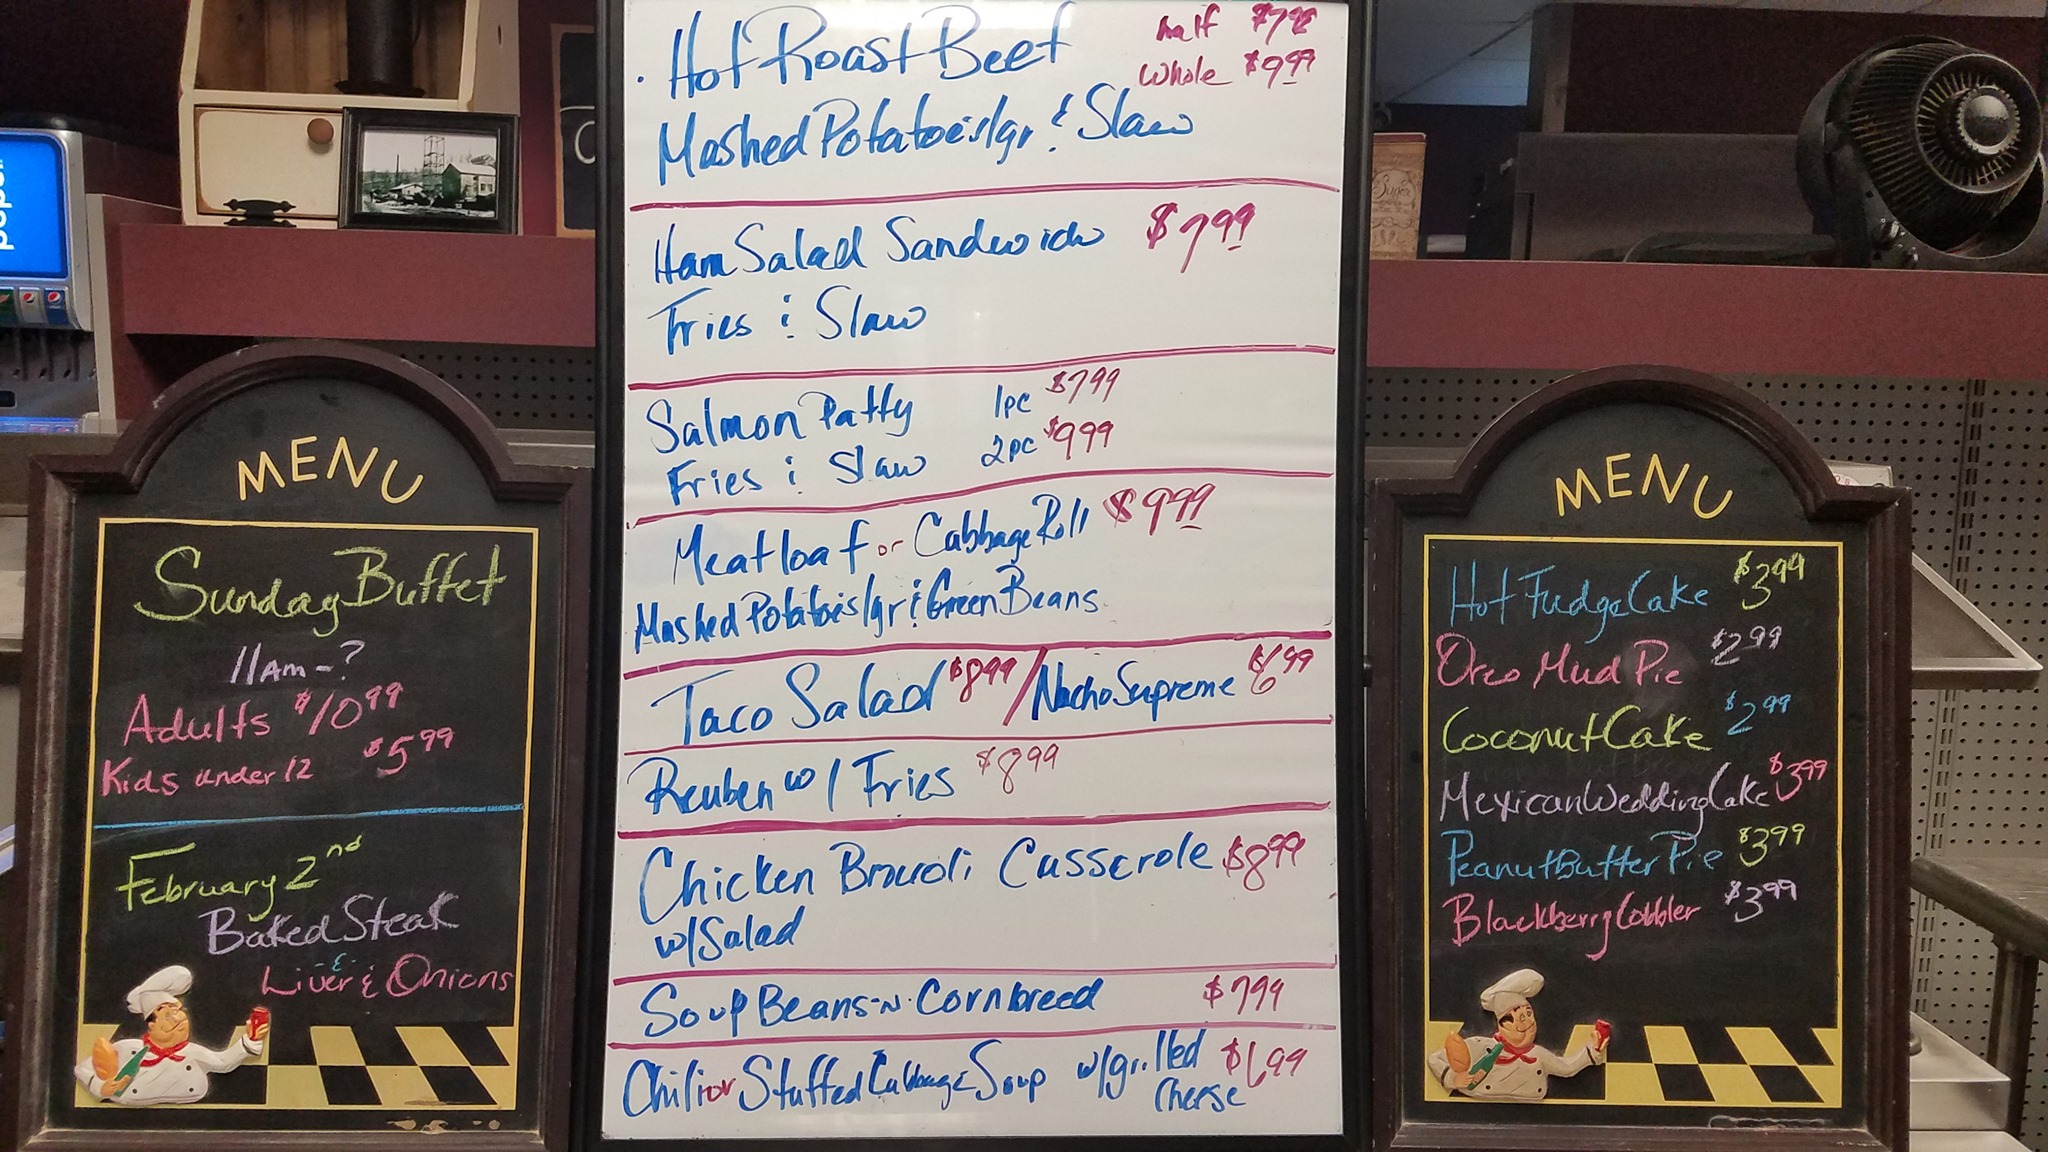 pepsi
MENU
Sunday Buffet
11AM-?
Adults $10.99
Kids under 12 $5.99
February 2nd
Baked Steak
-&-
Liver & Onions
· Hot Roast Beef half $7.99
whole $9.99
Mashed Potatoes/gr & Slaw
Ham Salad Sandwich $7.99
Fries & Slaw
Salmon Patty 1pc $7.99
Fries & Slaw 2pc $9.99
Meatloaf or Cabbage Roll $9.99
Mashed Potatoes/gr & Green Beans
Taco Salad $8.99 / Nacho Supreme $6.99
Reuben w/ Fries $8.99
Chicken Brocoli Casserole $8.99
w/Salad
Soup Beans-n-Cornbreed $7.99
Chili or Stuffed Cabbage Soup w/grilled $6.99
Cheese
MENU
Hot Fudge Cake $3.99
Oreo Mud Pie $2.99
Coconut Cake $2.99
Mexican Wedding Cake $3.99
Peanut Butter Pie $3.99
Blackberry Cobbler $3.99